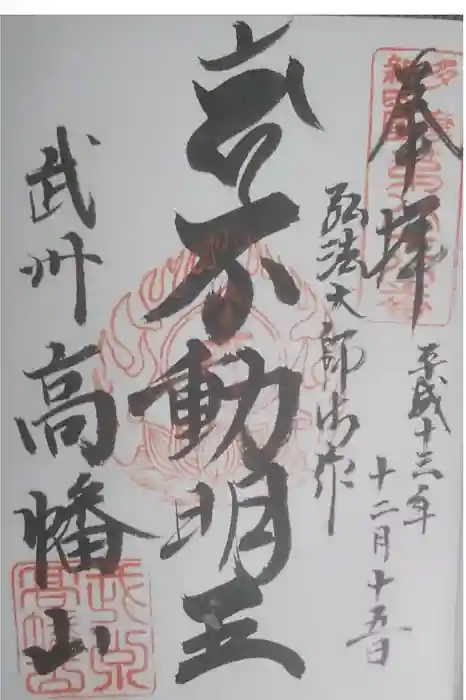 奉拝
平成十三年
十二月十五日
弘法大師御作
不動明王
武州高幡山